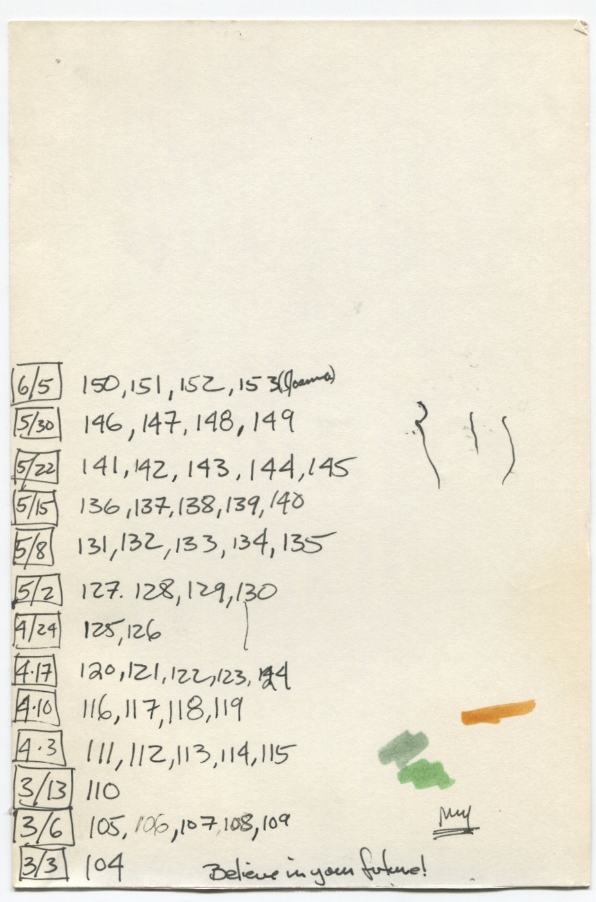 6/5 150, 151, 152, 153
5/30 146, 147, 148, 149
5/22 141, 142, 143, 144, 145
5/15 136, 137, 138, 139, 140
5/8 131, 132, 133, 134, 135
5/2 127. 128, 129, 130
4/24 125, 126
4.17 120, 121, 122, 123, 124
4.10 116, 117, 118, 119
4.3 111, 112, 113, 114, 115
3/13 110
3/6 105, 106, 107, 108, 109
3/3 104
Believe in your future!